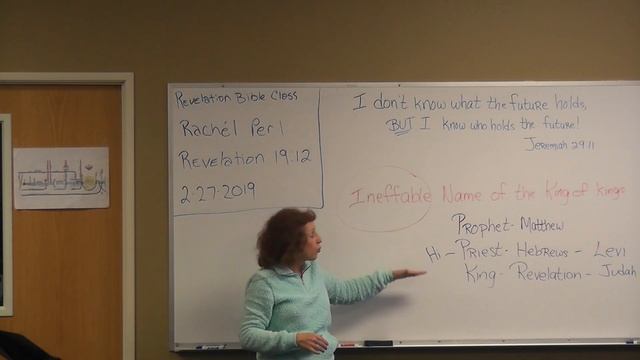 Revelation Bible Class
Rachél Perl
Revelation 19:12
2-27-2019
I don't know what the future holds,
BUT I know who holds the future!
Jeremiah 29:11
Ineffable Name of the King of kings
Prophet - Matthew
Hi - Priest - Hebrews - Levi
King - Revelation - Judah